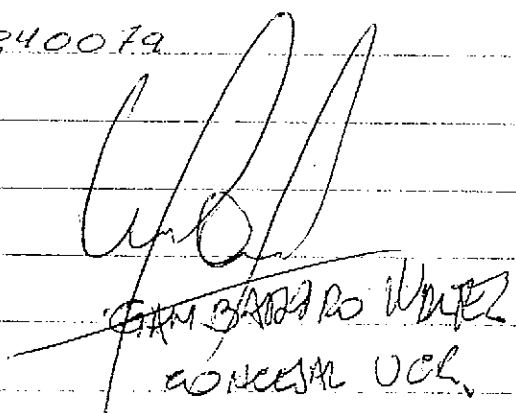 240079
GAMBADORO WALTER
CONCEJAL UCR.